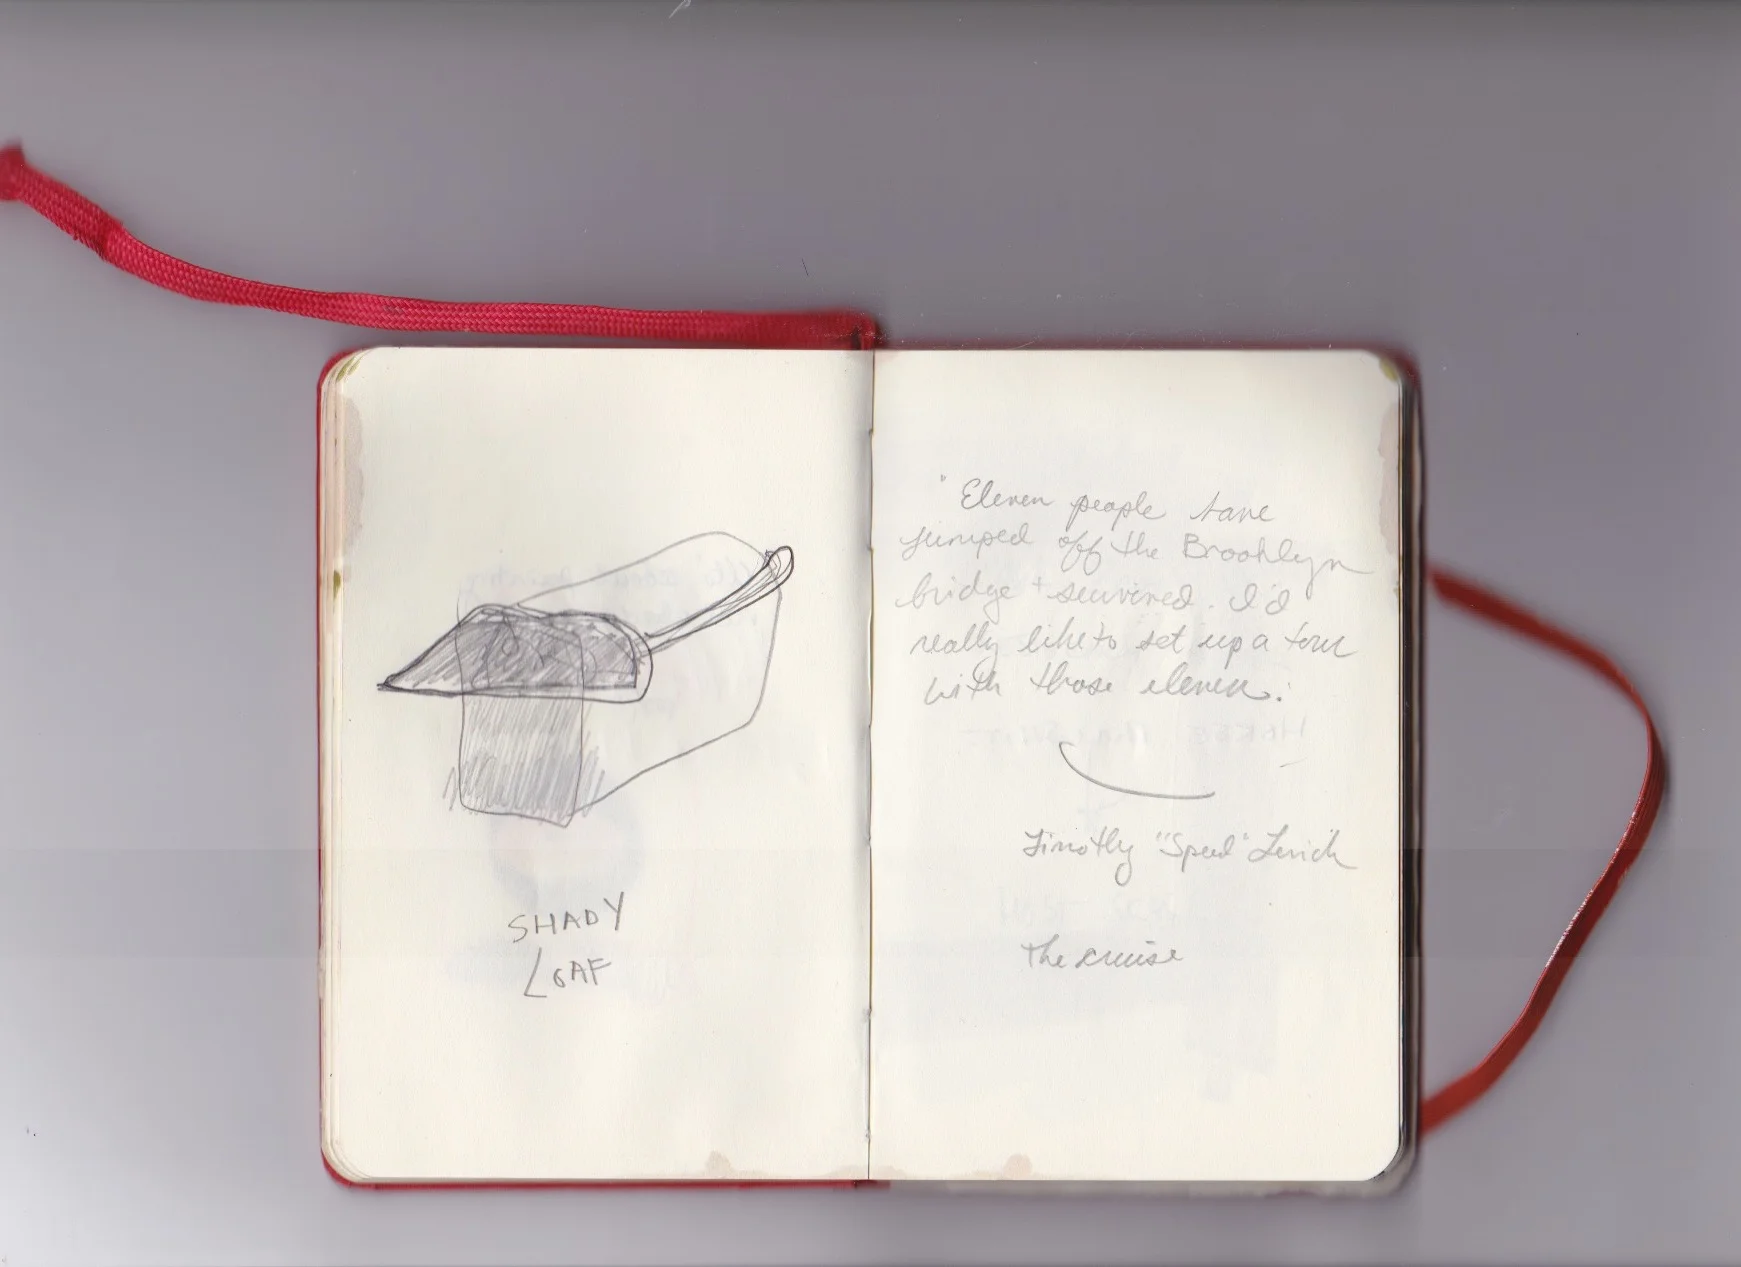 SHADY
LOAF
"Eleven people have
jumped off the Brooklyn
bridge + survived. I'd
really like to set up a tour
with those eleven."
Timothy "Speed" Levich
The cruise